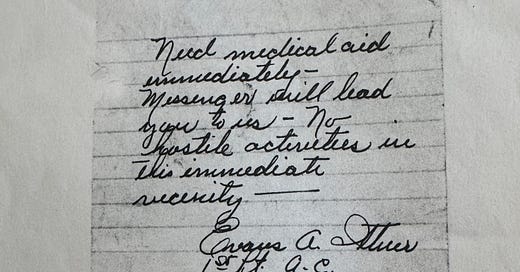 Need medical aid
immediately -
Messenger will lead
you to us - No
hostile activities in
this immediate
vicenity —
Evans A.
1st Lt. A.C.